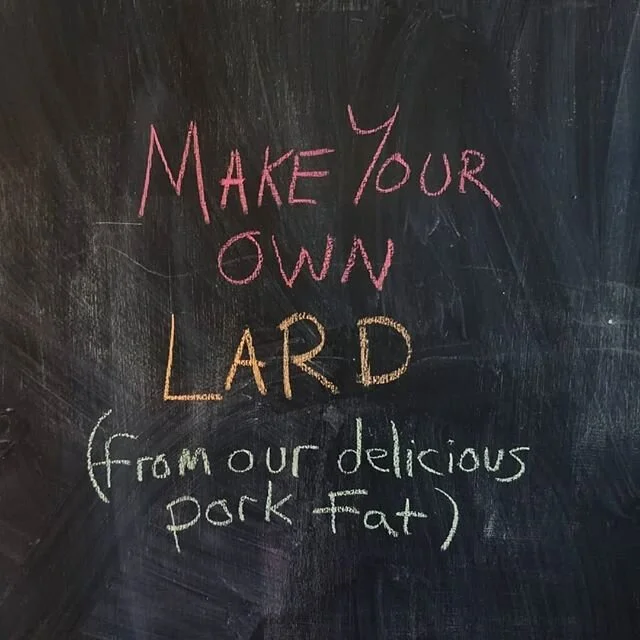 MAKE YOUR
OWN
LARD
(from our delicious
pork Fat)